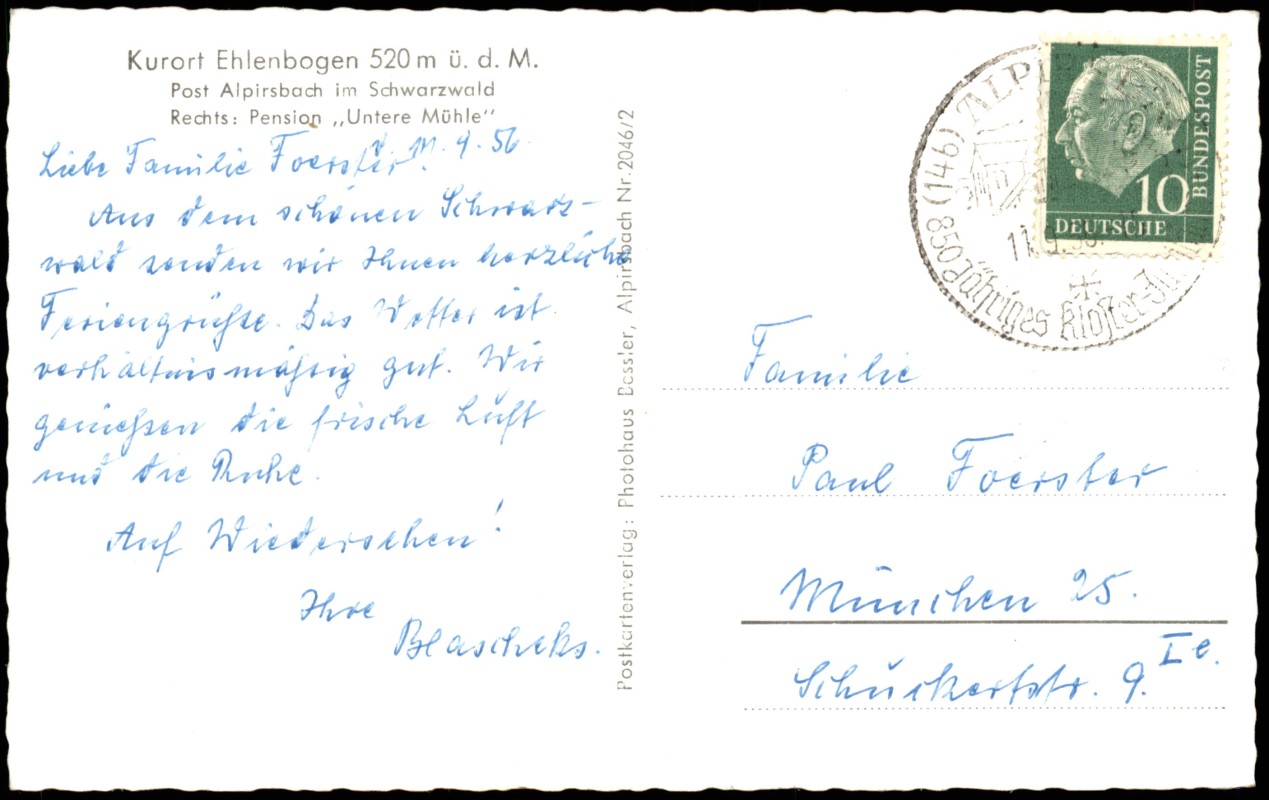 Kurort Ehlenbogen 520 m ü. d. M.
Post Alpirsbach im Schwarzwald
Rechts: Pension „Untere Mühle"
d. 11. 9. 56
Liebe Familie Foerster!
Aus dem schönen Schwarz-
wald senden wir Ihnen herzliche
Feriengrüße. Das Wetter ist
verhältnismäßig gut. Wir
genießen die frische Luft
und die Ruhe.
Auf Wiedersehen!
Ihre
Blascheks.
Postkartenverlag: Photohaus Dessler, Alpirsbach Nr. 2046/2
(14b) ALPI
11.9.56
850 jähriges Kloster-Ju
10
DEUTSCHE
BUNDESPOST
Familie
Paul Foerster
München 25.
Schuckertstr. 9. I e.